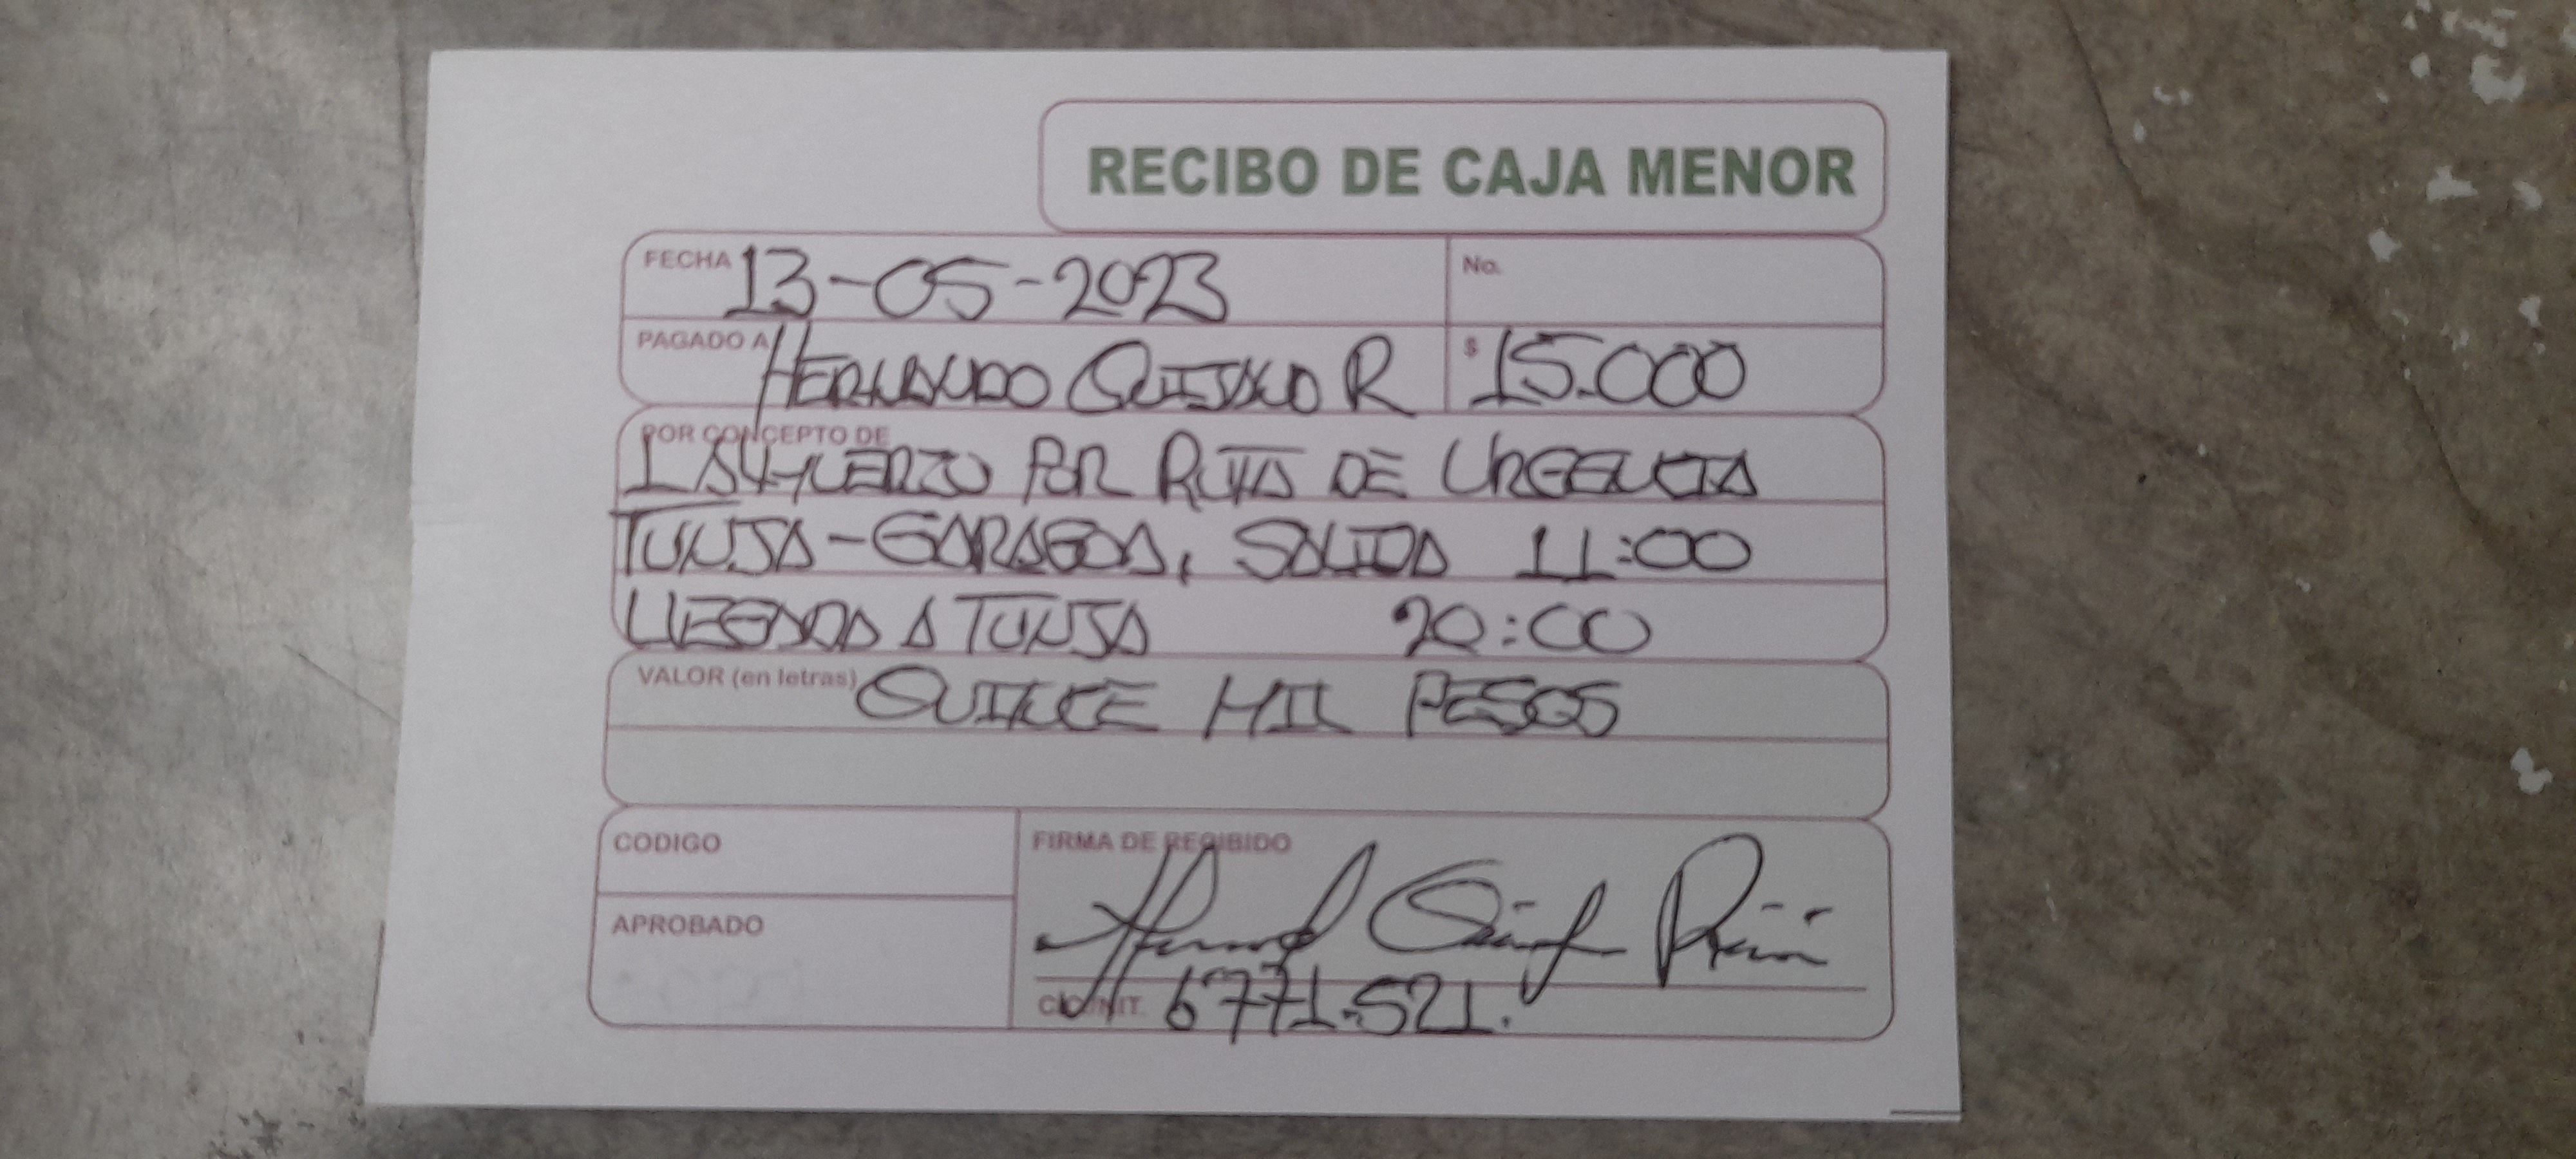 RECIBO DE CAJA MENOR
FECHA 13-05-2023 No.
PAGADO A HERNANDO QUIJANO R $ 15.000
POR CONCEPTO DE
1 ALMUERZO POR RUTA DE URGENCIA
TUNJA-GARAGOA, SALIDA 11:00
LLEGADA A TUNJA 20:00
VALOR (en letras) QUINCE MIL PESOS
CODIGO
FIRMA DE RECIBIDO
APROBADO
C.C./NIT. 6771.521.